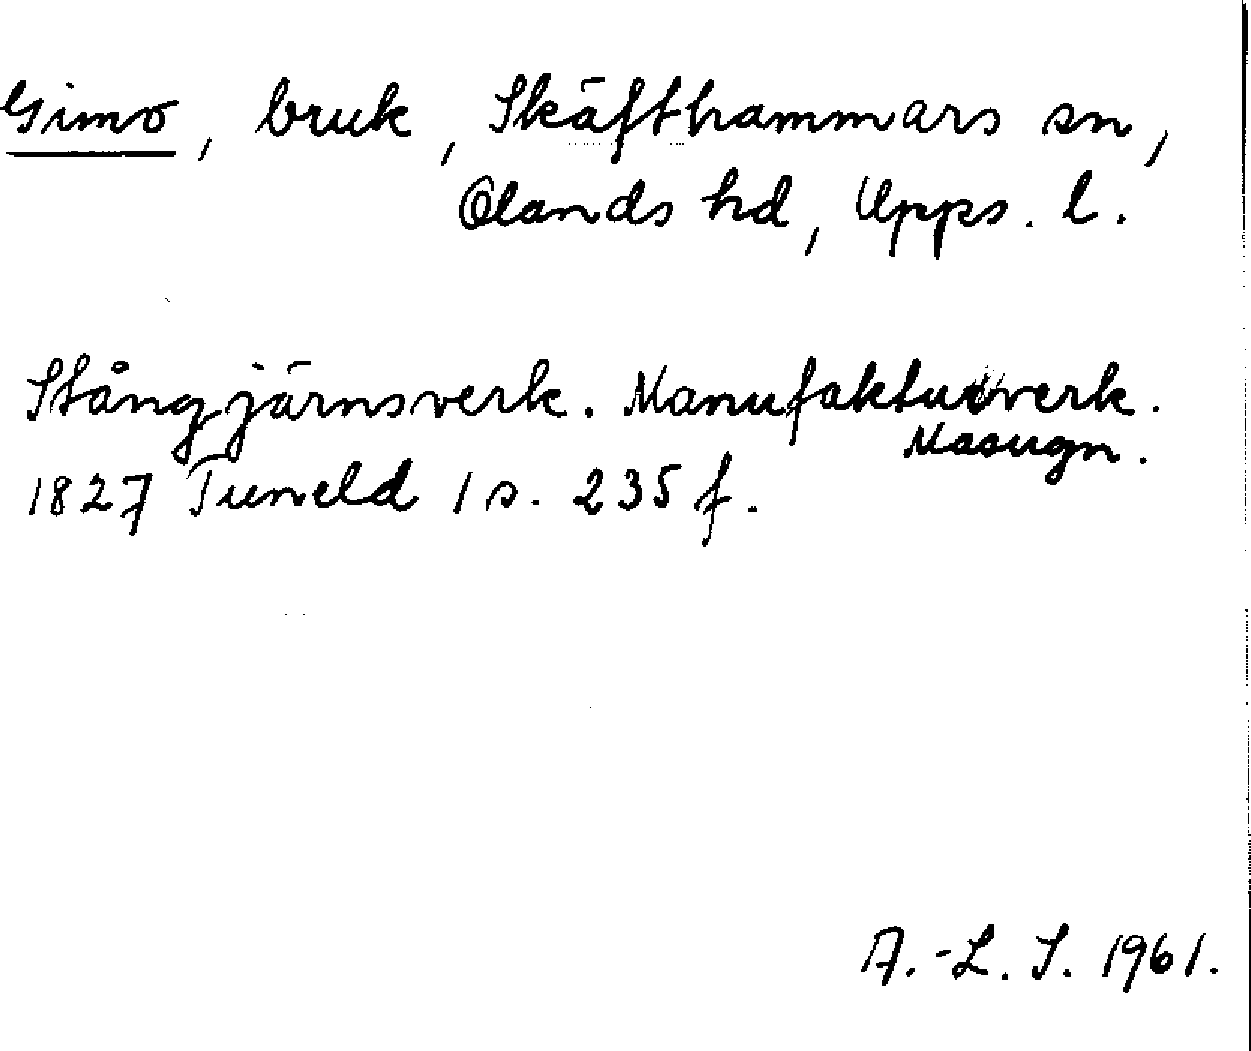 Gimo, bruk, Skäfthammars sn,
Olands hd, Upps. l.
Stångjärnsverk. Manufakturverk.
Masugn.
1827 Tuneld 1 s. 235 f.
A.-L. S. 1961.